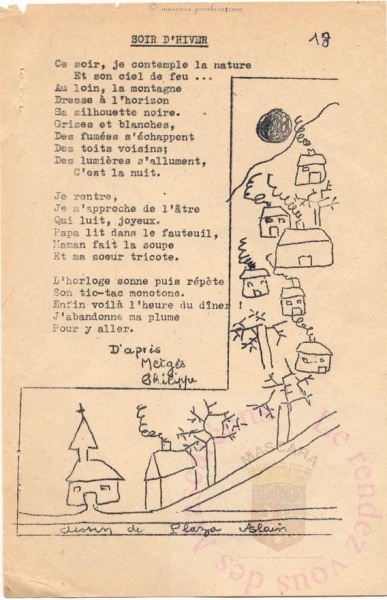 SOIR D'HIVER
17
Ce soir, je contemple la nature
Et son ciel de feu ...
Au loin, la montagne
Dresse à l'horizon
Sa silhouette noire.
Grises et blanches,
Des fumées s'échappent
Des toits voisins;
Des lumières s'allument,
C'est la nuit.
Je rentre,
Je m'approche de l'âtre
Qui luit, joyeux.
Papa lit dans le fauteuil,
Maman fait la soupe
Et ma soeur tricote.
L'horloge sonne puis répète
Son tic-tac monotone.
Enfin voilà l'heure du dîner !
J'abandonne ma plume
Pour y aller.
D'après
Metgés
Philippe
MASCARA
Le rendez vous des
dessin de Plaza Alain